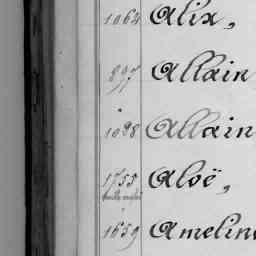 1064 Alix,
897 Allain
1098 Allain
1755 Aloë,
1659 Amelin